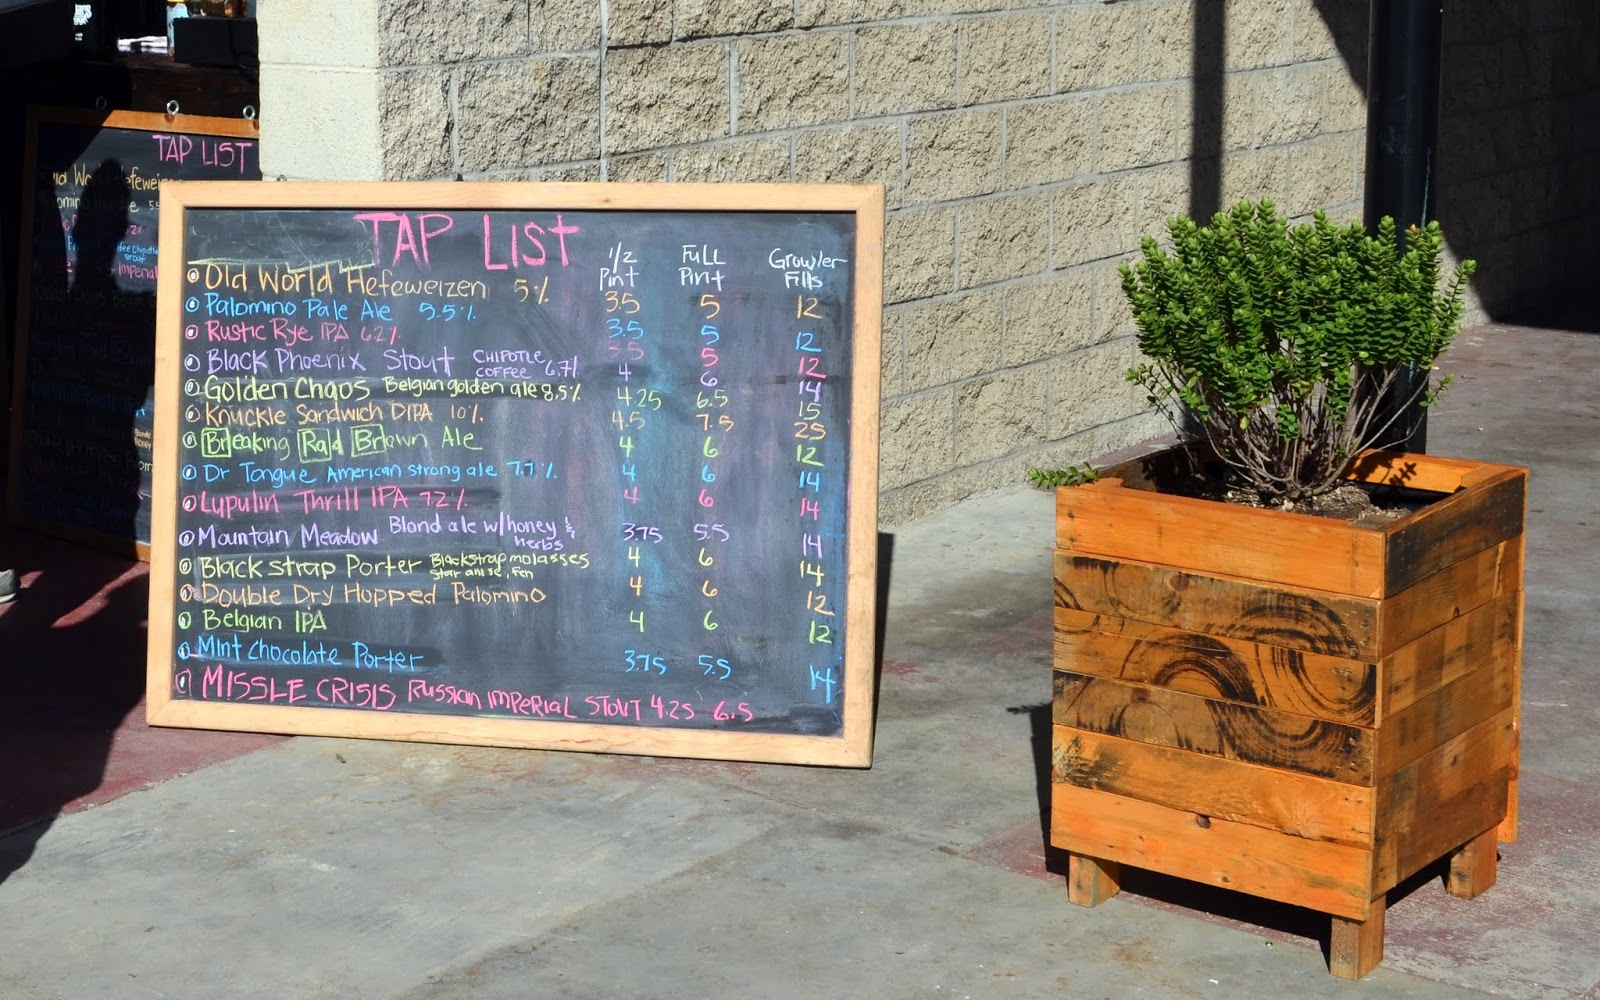 TAP LIST
TAP LIST 1/2 Pint Full Pint Growler Fills
Old World Hefeweizen 5% 3.5 5 12
Palomino Pale Ale 5.5% 3.5 5 12
Rustic Rye IPA 6.2% 3.5 5 12
Black Phoenix Stout CHIPOTLE COFFEE 6.7% 4 6 14
Golden Chaos Belgian golden ale 8.5% 4.25 6.5 15
Knuckle Sandwich DIPA 10% 4.5 7.5 25
Breaking Rad Brown Ale 4 6 12
Dr Tongue American strong ale 7.7% 4 6 14
Lupulin Thrill IPA 7.2% 4 6 14
Mountain Meadow Blond ale w/honey & herbs 3.75 5.5 14
Blackstrap Porter Blackstrap molasses star anise, Fen 4 6 14
Double Dry Hopped Palomino 4 6 12
Belgian IPA 4 6 12
Mint Chocolate Porter 3.75 5.5 14
MISSLE CRISIS Russian Imperial STOUT 4.25 6.5